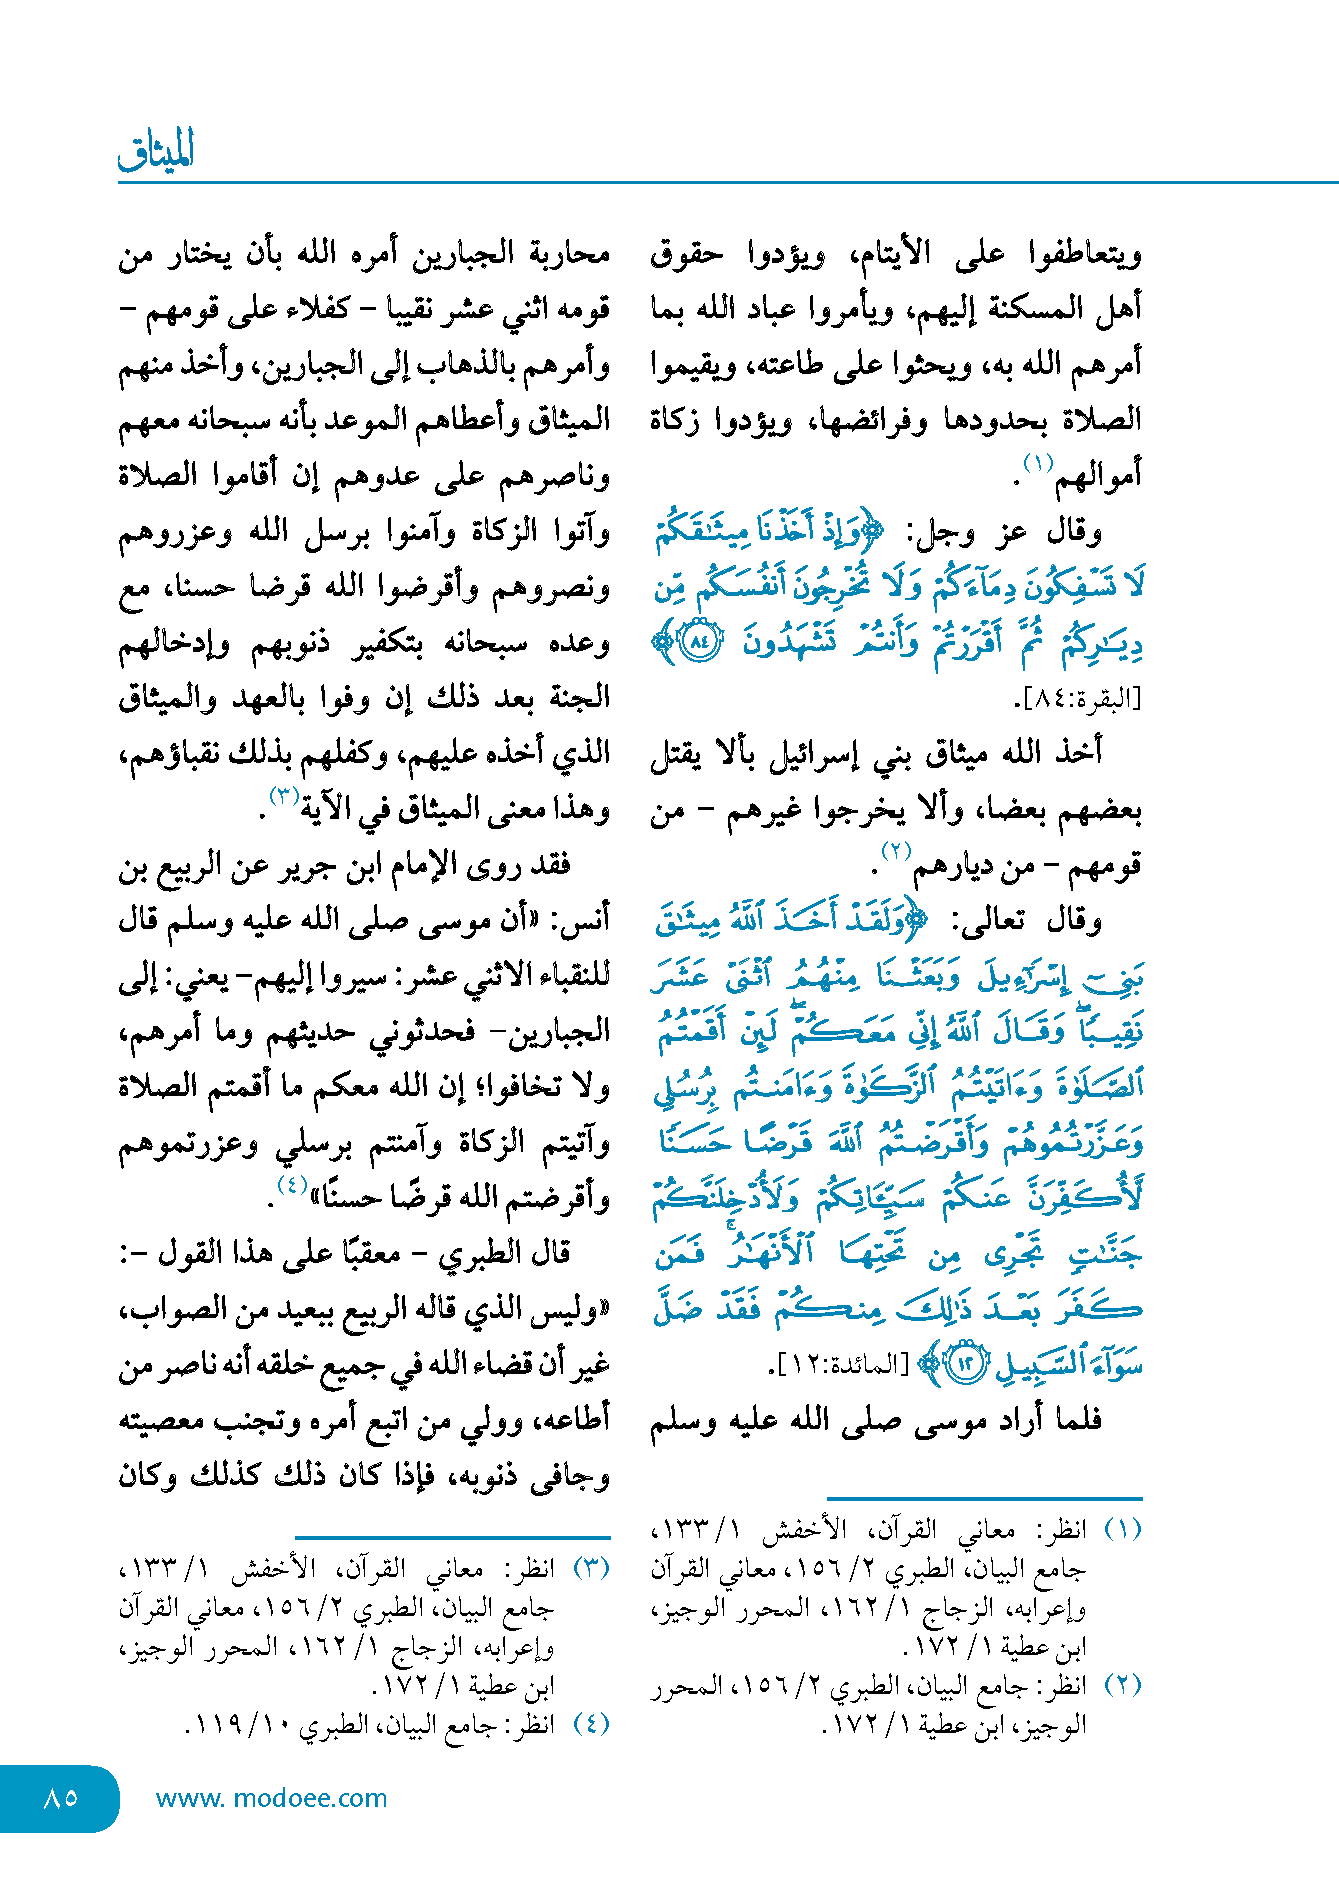 الميثاق
ويتعاطفوا على الأيتام، ويؤدوا حقوق
أهل المسكنة إليهم، ويأمروا عباد الله بما
أمرهم الله به، ويحثوا على طاعته، ويقيموا
الصلاة بحدودها وفرائضها، ويؤدوا زكاة
أموالهم(١).
وقال عز وجل: ﴿وَإِذْ أَخَذْنَا مِيثَـٰقَكُمْ
لَا تَسْفِكُونَ دِمَآءَكُمْ وَلَا تُخْرِجُونَ أَنفُسَكُم مِّن
دِيَـٰرِكُمْ ثُمَّ أَقْرَرْتُمْ وَأَنتُمْ تَشْهَدُونَ ٨٤﴾
[البقرة:٨٤].
أخذ الله ميثاق بني إسرائيل بألا يقتل
بعضهم بعضا، وألا يخرجوا غيرهم - من
قومهم - من ديارهم(٢).
وقال تعالى: ﴿وَلَقَدْ أَخَذَ ٱللَّهُ مِيثَـٰقَ
بَنِىٓ إِسْرَٰٓءِيلَ وَبَعَثْنَا مِنْهُمُ ٱثْنَىْ عَشَرَ
نَقِيبًا ۖ وَقَالَ ٱللَّهُ إِنِّى مَعَكُمْ ۖ لَئِنْ أَقَمْتُمُ
ٱلصَّلَوٰةَ وَءَاتَيْتُمُ ٱلزَّكَوٰةَ وَءَامَنتُم بِرُسُلِى
وَعَزَّرْتُمُوهُمْ وَأَقْرَضْتُمُ ٱللَّهَ قَرْضًا حَسَنًا
لَّأُكَفِّرَنَّ عَنكُمْ سَيِّـَٔاتِكُمْ وَلَأُدْخِلَنَّكُمْ
جَنَّـٰتٍ تَجْرِى مِن تَحْتِهَا ٱلْأَنْهَـٰرُ ۚ فَمَن
كَفَرَ بَعْدَ ذَٰلِكَ مِنكُمْ فَقَدْ ضَلَّ
سَوَآءَ ٱلسَّبِيلِ ١٢﴾ [المائدة:١٢].
فلما أراد موسى صلى الله عليه وسلم
(١) انظر: معاني القرآن، الأخفش ١/ ١٣٣،
جامع البيان، الطبري ٢/ ١٥٦، معاني القرآن
وإعرابه، الزجاج ١/ ١٦٢، المحرر الوجيز،
ابن عطية ١/ ١٧٢.
(٢) انظر: جامع البيان، الطبري ٢/ ١٥٦، المحرر
الوجيز، ابن عطية ١/ ١٧٢.
محاربة الجبارين أمره الله بأن يختار من
قومه اثني عشر نقيبا - كفلاء على قومهم -
وأمرهم بالذهاب إلى الجبارين، وأخذ منهم
الميثاق وأعطاهم الموعد بأنه سبحانه معهم
وناصرهم على عدوهم إن أقاموا الصلاة
وآتوا الزكاة وآمنوا برسل الله وعزروهم
ونصروهم وأقرضوا الله قرضا حسنا، مع
وعده سبحانه بتكفير ذنوبهم وإدخالهم
الجنة بعد ذلك إن وفوا بالعهد والميثاق
الذي أخذه عليهم، وكفلهم بذلك نقباؤهم،
وهذا معنى الميثاق في الآية(٣).
فقد روى الإمام ابن جرير عن الربيع بن
أنس: «أن موسى صلى الله عليه وسلم قال
للنقباء الاثني عشر: سيروا إليهم- يعني: إلى
الجبارين- فحدثوني حديثهم وما أمرهم،
ولا تخافوا؛ إن الله معكم ما أقمتم الصلاة
وآتيتم الزكاة وآمنتم برسلي وعزرتموهم
وأقرضتم الله قرضًا حسنًا»(٤).
قال الطبري - معقبًا على هذا القول -:
«وليس الذي قاله الربيع ببعيد من الصواب،
غير أن قضاء الله في جميع خلقه أنه ناصر من
أطاعه، وولي من اتبع أمره وتجنب معصيته
وجافى ذنوبه، فإذا كان ذلك كذلك وكان
(٣) انظر: معاني القرآن، الأخفش ١/ ١٣٣،
جامع البيان، الطبري ٢/ ١٥٦، معاني القرآن
وإعرابه، الزجاج ١/ ١٦٢، المحرر الوجيز،
ابن عطية ١/ ١٧٢.
(٤) انظر: جامع البيان، الطبري ١٠/ ١١٩.
٨٥ www. modoee.com